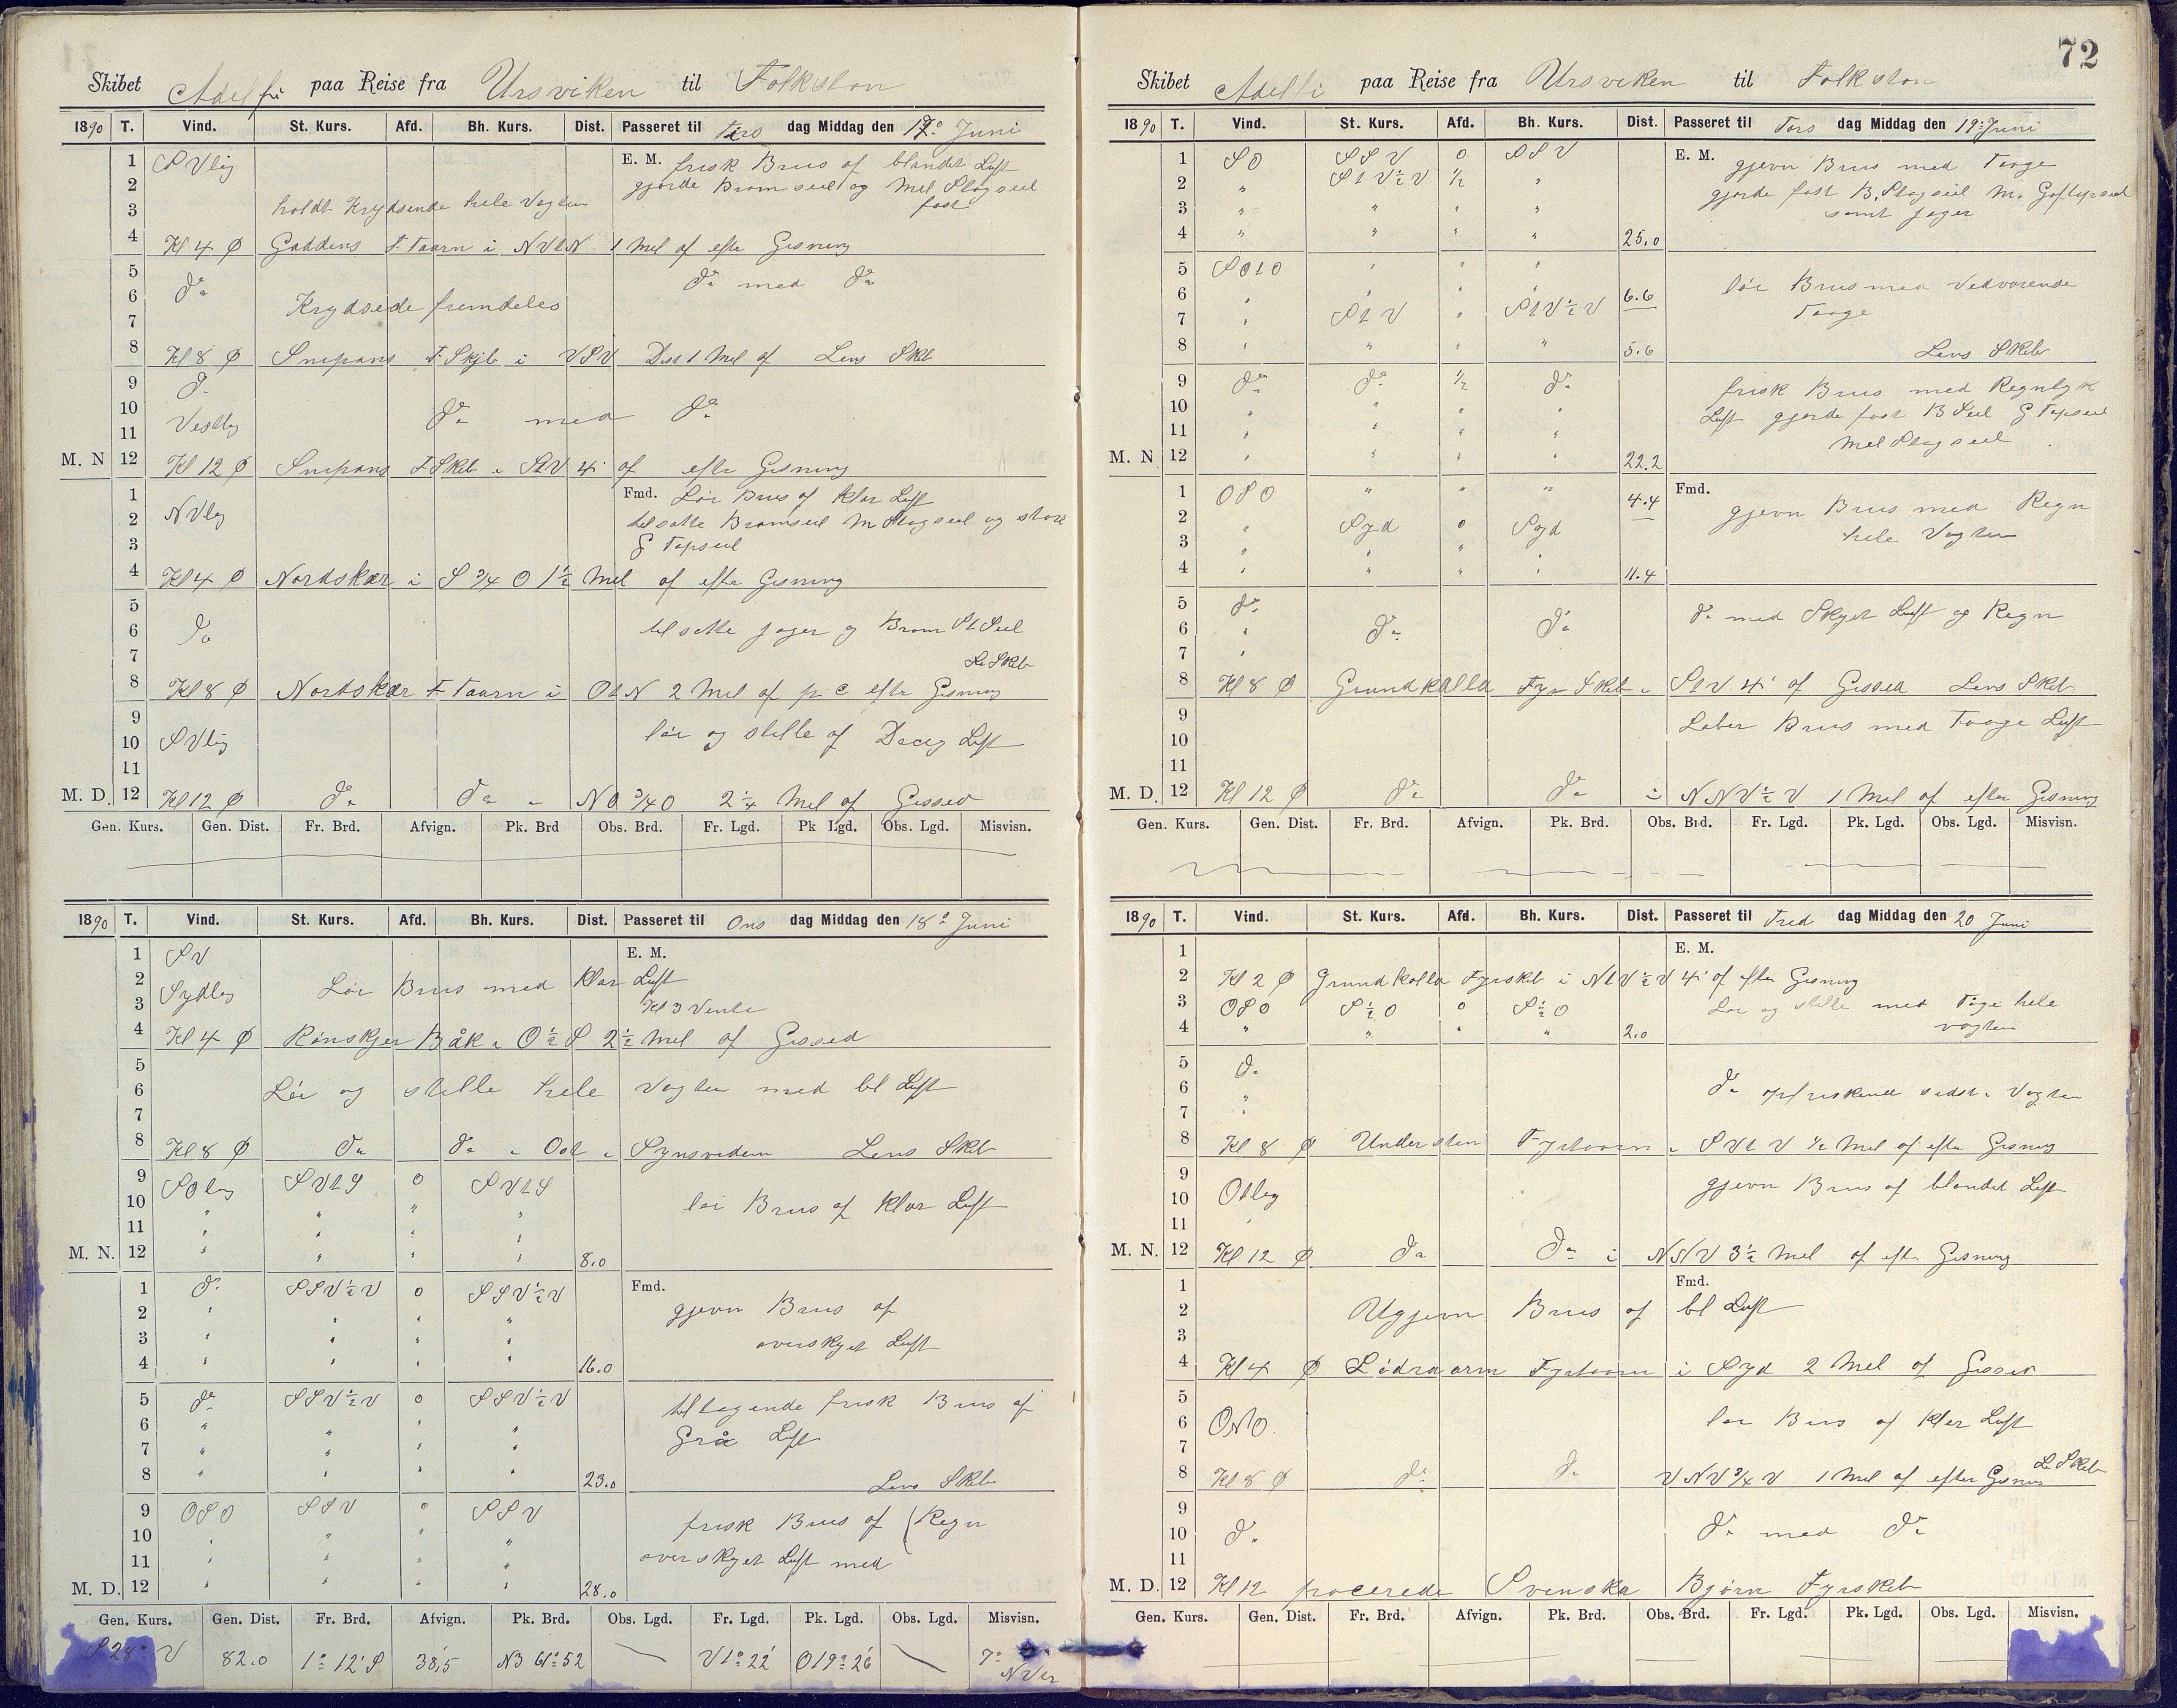 Skibet Adelfi paa Reise fra Ursviken til Folkston
1890 T. Vind. St. Kurs. Afd. Bh. Kurs. Dist. Passeret til Tirs dag Middag den 17de Juni
1 SVlig E. M. frisk Brus af blandet Luft
2 gjorde Bramseil og Mel Stagseil
3 holdt Krydsende hele Vagten fast
4 Kl 4 Ø Gaddens F. Taarn i NVtN 1 Mel af efter Gisning
5 do do med do
6 Krydsede fremdeles
7
8 Kl 8 Ø Snipans F. Skib i VSV Dist 1 Mel af Lens Skib
9 do
10 do med do
11 Vestlig
M. N 12 Kl 12 Ø Snipans F Skib i StV 4' af efter Gisning
1 Fmd. Lør Brus af klar Luft
2 NVlig tilsatte Bramseil M Stagseil og store
3 G Topseil
4 Kl 4 Ø Nordskær i S 3/4 O 1 1/2 Mel af efter Gisning
5
6 do tilsatte jager og Bram St Seil
7 Le Skib
8 Kl 8 Ø Nordskær F Taarn i OtN 2 Mel af p C efter Gisning
9 lør og stille af Luft
10 SVlig
11
M. D. 12 Kl 12 Ø do do i NO 3/4 O 2 1/4 Mel af Gisset
Gen. Kurs. Gen. Dist. Fr. Brd. Afvign. Pk. Brd Obs. Brd. Fr. Lgd. Pk Lgd. Obs. Lgd. Misvisn.
1890 T. Vind. St. Kurs. Afd. Bh. Kurs. Dist. Passeret til Ons dag Middag den 18de Juni
1 SV E. M.
2 Sydlig Lør Brus med klar Luft
3 Kl 3 Vente
4 Kl 4 Ø Rønskjer Båk i O 1/2 S 2 1/2 Mel af Gissed
5
6 Lør og stille hele Vagten med bl Luft
7
8 Kl 8 Ø do do i Ost i Synsvidden Lens Skib
9 SOlig SVtS 0 SVtS
10 " " " " lør Brus af klar Luft
11 " " " "
M. N. 12 " " " " 8.0
1 do SSV 1/2 V 0 SSV 1/2 V Fmd.
2 " " " " gjevn Brus af
3 " " " " overskyet Luft
4 " " " " 16.0
5 do SSV 1/2 V 0 SSV 1/2 V tiltagende frisk Brus af
6 " " " " Grå Luft
7 " " " "
8 " " " " 23.0 Lens Skib
9 OSO SSV 0 SSV
10 " " " " frisk Brus af (Regn
11 " " " " overskyet Luft med
M. D. 12 " " " " 28.0
Gen. Kurs. Gen. Dist. Fr. Brd. Afvign. Pk. Brd. Obs. Lgd. Fr. Lgd. Pk. Lgd. Obs. Lgd. Misvisn.
S 28° V 82.0 1° 12' S 38,5 NB 61° 52 V 1° 22' O 19° 26' 7° NVer
72
Skibet Adelfi paa Reise fra Ursviken til Folkston
1890 T. Vind. St. Kurs. Afd. Bh. Kurs. Dist. Passeret til Tors dag Middag den 19: Juni
1 SO SSV 0 SSV E. M. gjevn Brus med Taage
2 " StV 1/2 V 1/2 " gjorde fast B. Stagseil M. Gaftopseil
3 " " " " samt jager
4 " " " " 25.0
5 SOtO " " "
6 " " " " 6.6 lør Brus med Vedvarende
7 " StV " StV 1/2 V Taage
8 " " " " 5.6 Lens Skib
9 do do 1/2 do frisk Brus med Regntyk
10 " " " " Luft gjorde fast B Seil G Topseil
11 " " " " Mel Stagseil
M. N 12 " " " " 22.2
1 OSO " " " 4.4 Fmd.
2 " Syd 0 Syd gjevn Brus med Regn
3 " " " " hele Vagten
4 " " " " 11.4
5 do do med Skyet Luft og Regn
6 " do do
7 "
8 Kl 8 Ø Grundkalla Fyr Skib i StV 4' af Gissed Lens Skib
9 Laber Brus med Taage Luft
10
11
M. D. 12 Kl 12 Ø do do i NNV 1/2 V 1 Mel af efter Gisning
Gen. Kurs. Gen. Dist. Fr. Brd. Afvign. Pk. Brd. Obs. Brd. Fr. Lgd. Pk. Lgd. Obs. Lgd. Misvisn.
1890 T. Vind. St. Kurs. Afd. Bh. Kurs. Dist. Passeret til Fred dag Middag den 20 Juni
1 E. M.
2 Kl 2 Ø Grundkalla Fyrskib i NtV 1/2 V 4' af efter Gisning
3 OSO S 1/2 O 0 S 1/2 O Lør og stille med Tåge hele
4 " " " " 2.0 vagten
5 do
6 " do opfriskende sidst i Vagten
7 "
8 Kl 8 Ø Understen Fyrtaarn i SVtV 1/2 Mel af efter Gisning
9 gjevn Brus af blandet Luft
10 Ostlig
11 "
M. N. 12 Kl 12 Ø do do i NNV 3 1/2 Mel af efter Gisning
1 Fmd.
2 Ugjevn Brus af bl Luft
3
4 Kl 4 Ø Södra arm Fyrtaarn i Syd 2 Mel af Gisset
5
6 ONO. lør Brus af klar Luft
7 Le Skib
8 Kl 8 Ø do do VNV 3/4 V 1 Mel af efter Gisning
9
10 do do med do
11
M. D. 12 Kl 12 pacerede Svenska Bjørn Fyrskib
Gen. Kurs. Gen. Dist. Fr. Brd. Afvign. Pk. Brd. Obs. Brd. Fr. Lgd. Pk. Lgd. Obs. Lgd. Misvisn.